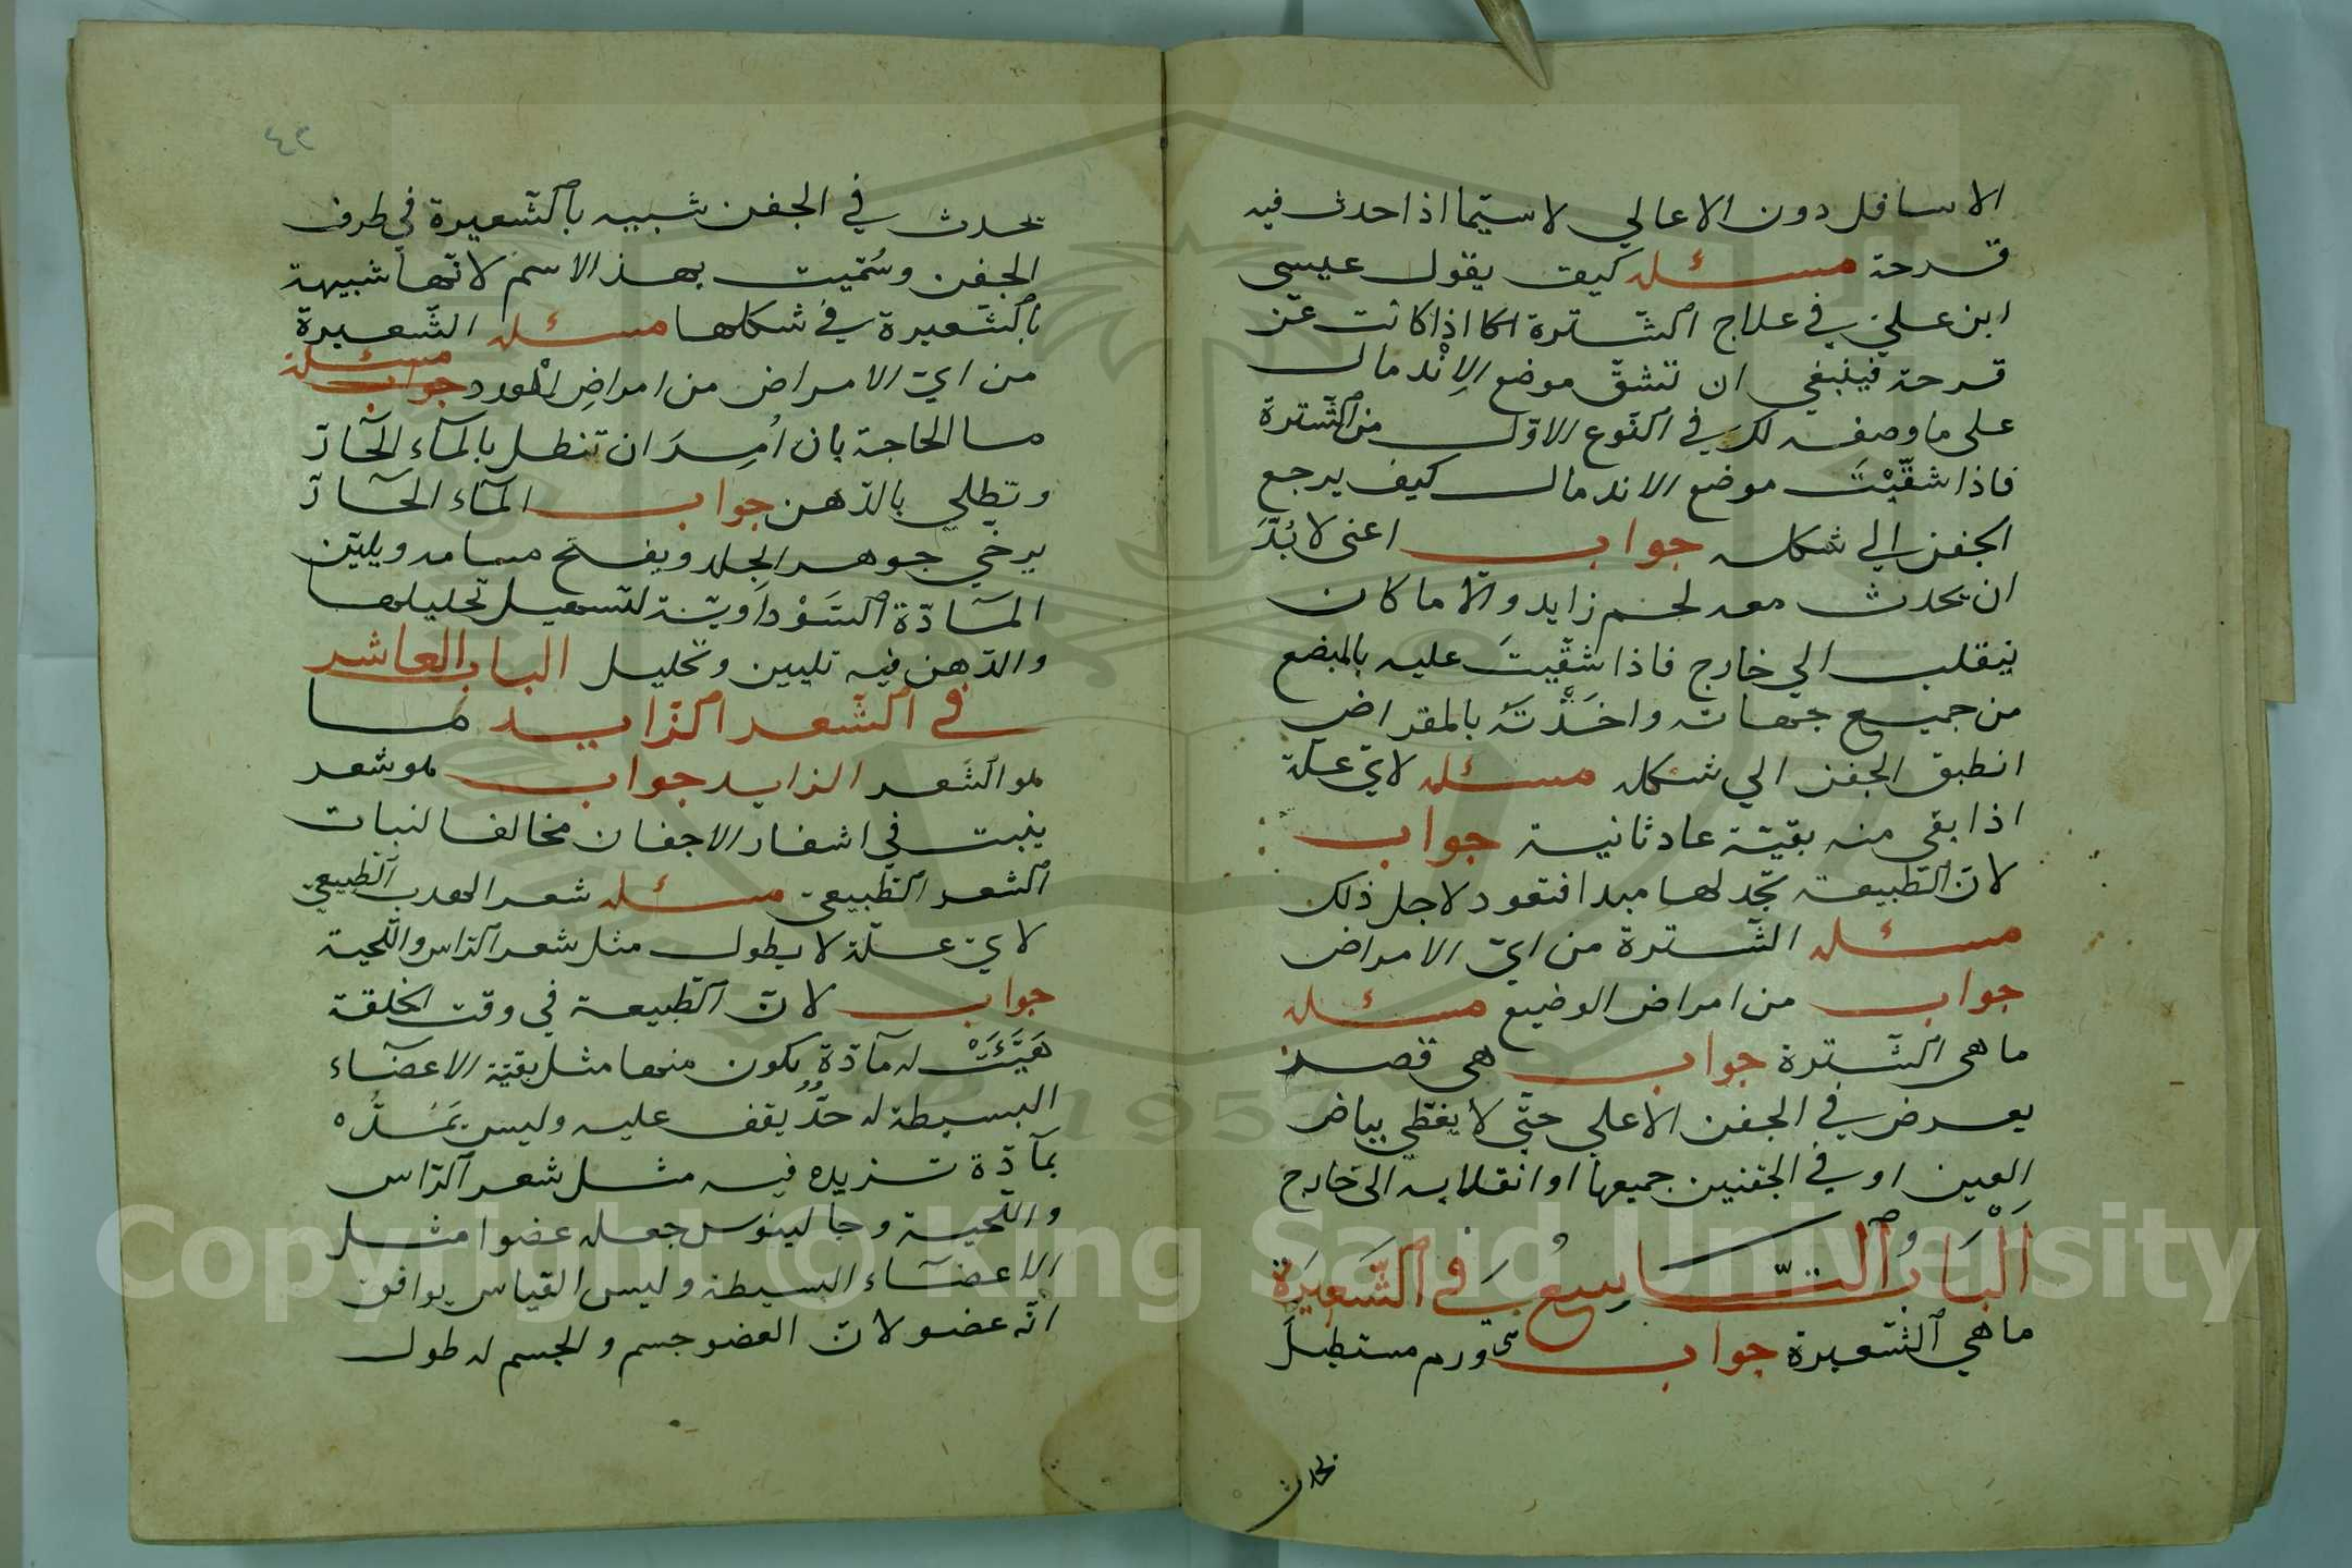 الاسافل دون الاعالي لاسيّما اذا حدث فيه
قرحة مسئله كيف يقول عيسى
ابن علي في علاج الشترة اذا كانت عن
قرحة فينبغي ان تشقّ موضع الاِنْدمال
على ما وصفه لك في النّوع الاوّل من الشّترة
فاذا شقّيْتَ موضع الاندمال كيف يرجع
الجفن الي شكله جواب اعنى لا بُدَّ
ان يحدث معه لحم زايد والّا ما كان
ينقلب الي خارج فاذا شقّيتَ عليه بالمبضع
من جميع جهاته واخَذْتَهُ بالمقراض
انطبق الجفن الي شكله مسئله لايّ علّة
اذا بقى منه بقيّة عاد ثانية جواب
لانّ الطّبيعة تجد لها مبدا فتعود لاجل ذلك
مسئله الشّترة من ايّ الامراض
جواب من امراض الوضيع مسئله
ما هى الشّترة جواب هى قصر
يعرض في الجفن الاعلى حتّى لا يغطّي بياض
العين او في الجفنين جميعها او انقلابه الى خارج
اَلْبَابُ التَّاسِعُ فِى الشَّعِيرَة
ما هي الشّعيرة جواب هى ورم مستطيل
تحدث
٤٢
تحدث في الجفن شبيه بالشّعيرة في طرف
الجفن وسُمّيت بهذ الاسم لانّها شبيهة
بالشّعيرة في شكلها مسئله الشّعيرة
من ايّ الامراض من امراضِ المورد جواب مسئلة
ما الحاجة بان اُمِرَ ان تنطل بالمآء الحآرّ
وتطلي بالدّهن جواب المآء الحآرّ
يرخّي جوهر الجلد ويفتح مسامه ويليّن
المآدّة السّوْداويّة لتسهيل تحليلها
والدّهن فيه تليين وتحليل الباب العاشر
في الشّعر الزّايد ما
هو الشّعر الزايد جواب هو شعر
ينبت في اشفار الاجفان مخالفا لنبات
الشعر الطّبيعى مسئله شعر الهدب الطّبيعي
لايّ علّة لا يطول مثل شعر الرّاس واللّحية
جواب لانّ الطّبيعة في وقت الخلقة
هَيَّئَتْ له مآدّةٍ يكون منها مثل بقيّة الاعضآء
البسيطة له حدٌّ يقف عليه وليس يَمَُدُّه
بمآدّة تزيده فيه مثل شعر الرّاس
واللّحية وجالينوس جعله عضوا مثل
الاعضآء البسيطة وليس القياس يوافق
انّه عضو لانّ العضو جسم والجسم له طول
Copyright © King Saud University
1957